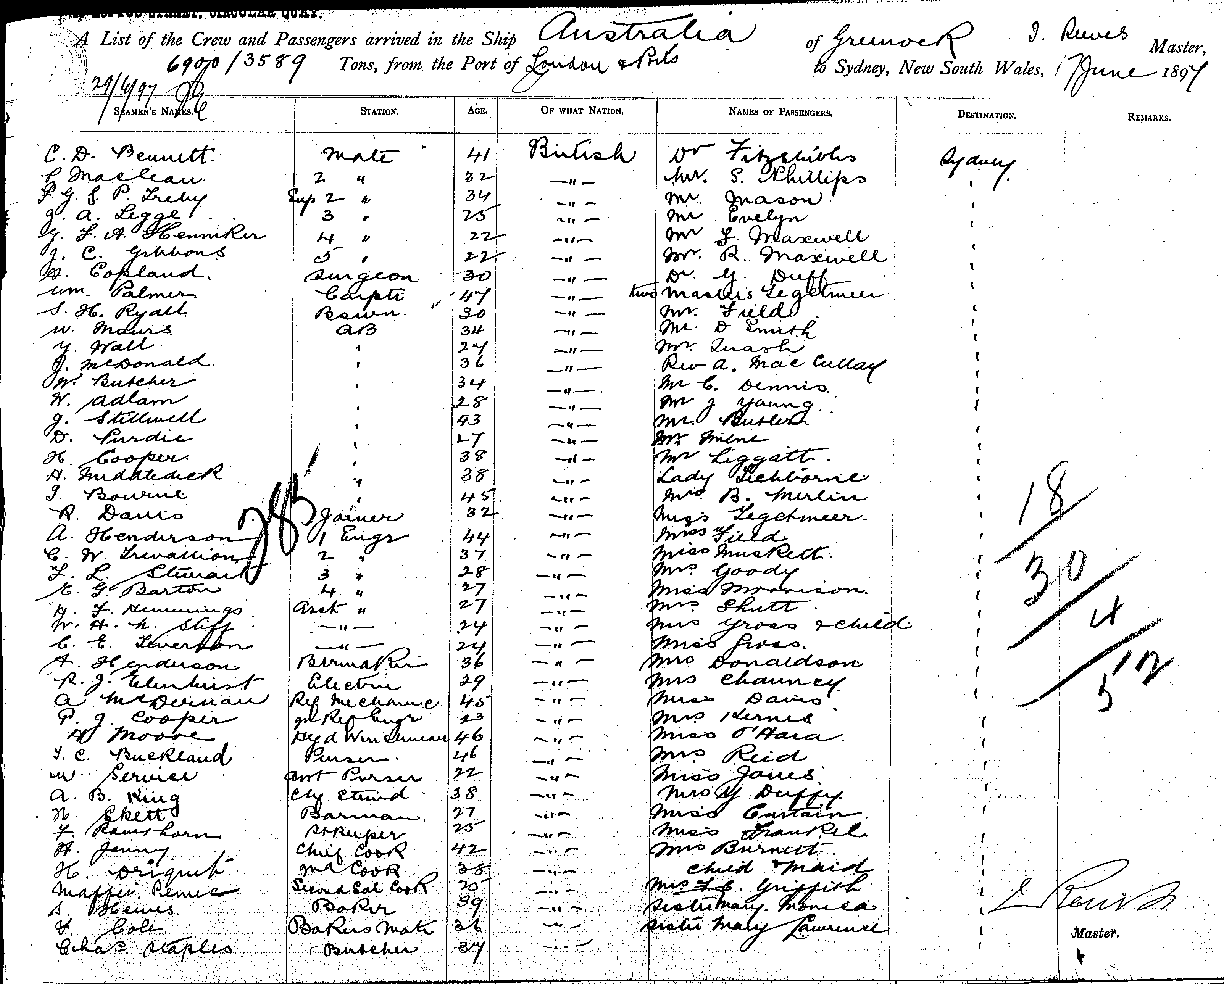 A List of the Crew and Passengers arrived in the Ship Australia of Greenock J. Reeves Master,
6900/3589 Tons, from the Port of London & Ports to Sydney, New South Wales, 17 June 1897
29/6/97
SEAMEN'S NAMES. STATION. AGE. OF WHAT NATION. NAMES OF PASSENGERS. DESTINATION. REMARKS.
C. D. Bennett Mate 41 British Dr Fitzgibbs Sydney
Maclean 2 " 32 -"- Mr. S. Phillips
P. G. S. P. Treby Sup 2 " 34 -"- Mr. Mason
A. Legge 3 " 25 -"- Mr Evelyn
F. A. Henniker 4 " 22 -"- Mr F. Maxwell
J. C. Gibbons 5 " 22 -"- Mr. R. Maxwell
Copland. Surgeon 30 -"- Dr G. Duff
Wm. Palmer Carptr 47 -"- two Masters Tegetmeer
S. H. Ryall Bosun 30 -"- Mr. Field
W. Mows AB 34 -"- Mr. D Smith
Y. Wall " 27 -"- Mr.
J. McDonald " 36 -"- Rev A. Mac Cullay
W. Butcher " 34 -"- Mr C. Dennis
W. Adlam " 28 -"- Mr J Young
J. Stillwell " 43 -"- Mr Butler
D. Purdie " 27 -"- Mr Milne
H. Cooper " 38 -"- Mr Liggatt.
A. Middledick " 38 -"- Lady Tichborne
J. Bourne " 45 -"- Mrs B. Merlin
R. Davis Joiner 32 -"- Miss Tegetmeer.
A. Henderson 1 Engr 44 -"- Miss Field
C. W. Trevallion 2 " 37 -"- Miss Muskett.
F. L. Stewart 3 " 28 -"- Mrs Goody
E. G Barton 4 " 27 -"- Miss Morrison
H. F. Hemmings Asst " 27 -"- Mrs Shutt
W. H. h. Stiff -"- 24 -"- Mrs Gross & child
C. E. Leverson -"- 24 -"- Miss Gross.
A. Henderson Birmaker 36 -"- Mrs Donaldson
R. J. Electrin 29 -"- Mrs Chauncy
A McDermau Ref Mechanic 45 -"- Miss Davis
P. J. Cooper 2nd Ref Engr 23 -"- Mrs Kernes
W Moore 46 -"- Miss O'Hara
T. C. Buckland Purser 46 -"- Mrs Reid
W. Service Asst Purser 22 -"- Miss Jones
A. B. King Clk Steward 38 -"- Mrs Y Duffy
N Skett Barman 27 -"- Miss Curtain
F Ramshorn St Keeper 25 -"- Miss Frankel
H. Jenny Chief Cook 42 -"- Mrs Burnett
H. 2nd Cook 38 -"- child & Maid
Second Sal Cook 25 -"- Mrs F. E. Griffith
S. Hewis Baker 39 -"- Sister Mary Monica
F Cole Bakers Mate 36 -"- Sister Mary Lawrence
Chas Staples Butcher 37 -"-
285
18
30
4
52
J Reeves
Master.